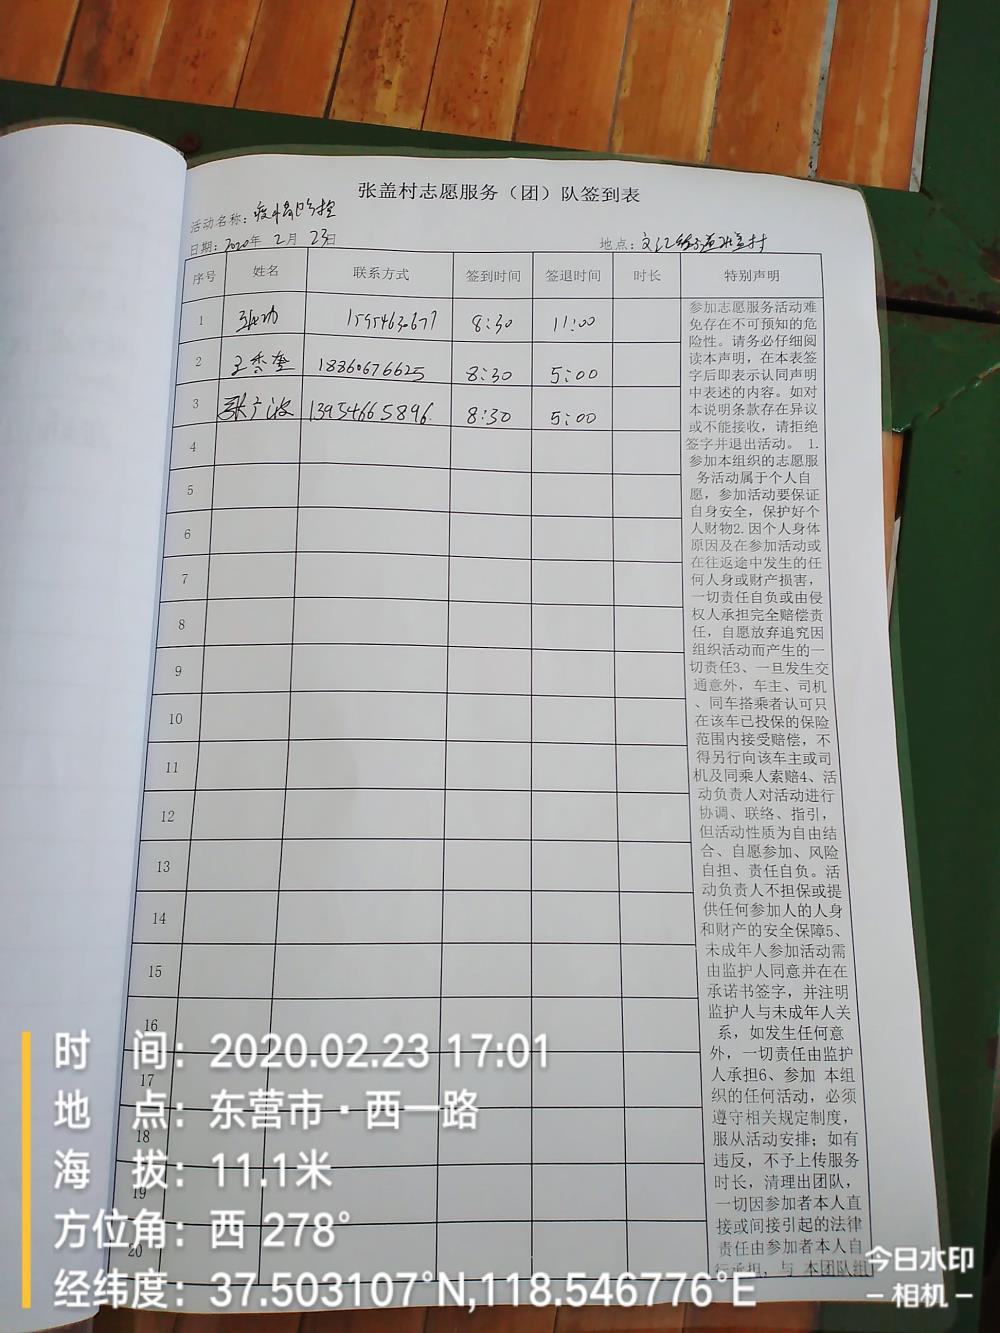 张盖村志愿服务（团）队签到表
活动名称：疫情防控
日期：2020年 2月 23日 地点：文汇街道张盖村
序号 姓名 联系方式 签到时间 签退时间 时长 特别声明
1 8:30 11:00
2 王香奎 18360676625 8:30 5:00
3 张广波 13954665896 8:30 5:00
4
5
6
7
8
9
10
11
12
13
14
15
16
17
18
19
20
参加志愿服务活动难
免存在不可预知的危
险性。请务必仔细阅
读本声明，在本表签
字后即表示认同声明
中表述的内容。如对
本说明条款存在异议
或不能接收，请拒绝
签字并退出活动。 1.
参加本组织的志愿服
务活动属于个人自
愿，参加活动要保证
自身安全，保护好个
人财物2.因个人身体
原因及在参加活动或
在往返途中发生的任
何人身或财产损害，
一切责任自负或由侵
权人承担完全赔偿责
任，自愿放弃追究因
组织活动而产生的一
切责任3、一旦发生交
通意外，车主、司机
、同车搭乘者认可只
在该车已投保的保险
范围内接受赔偿，不
得另行向该车主或司
机及同乘人索赔4、活
动负责人对活动进行
协调、联络、指引，
但活动性质为自由结
合、自愿参加、风险
自担、责任自负。活
动负责人不担保或提
供任何参加人的人身
和财产的安全保障5、
未成年人参加活动需
由监护人同意并在在
承诺书签字，并注明
监护人与未成年人关
系，如发生任何意
外，一切责任由监护
人承担6、参加 本组
织的任何活动，必须
遵守相关规定制度，
服从活动安排；如有
违反，不予上传服务
时长，清理出团队，
一切因参加者本人直
接或间接引起的法律
责任由参加者本人自
行承担，与 本团队组
时 间：2020.02.23 17:01
地 点：东营市·西一路
海 拔：11.1米
方位角：西 278°
经纬度：37.503107°N,118.546776°E
今日水印
相机